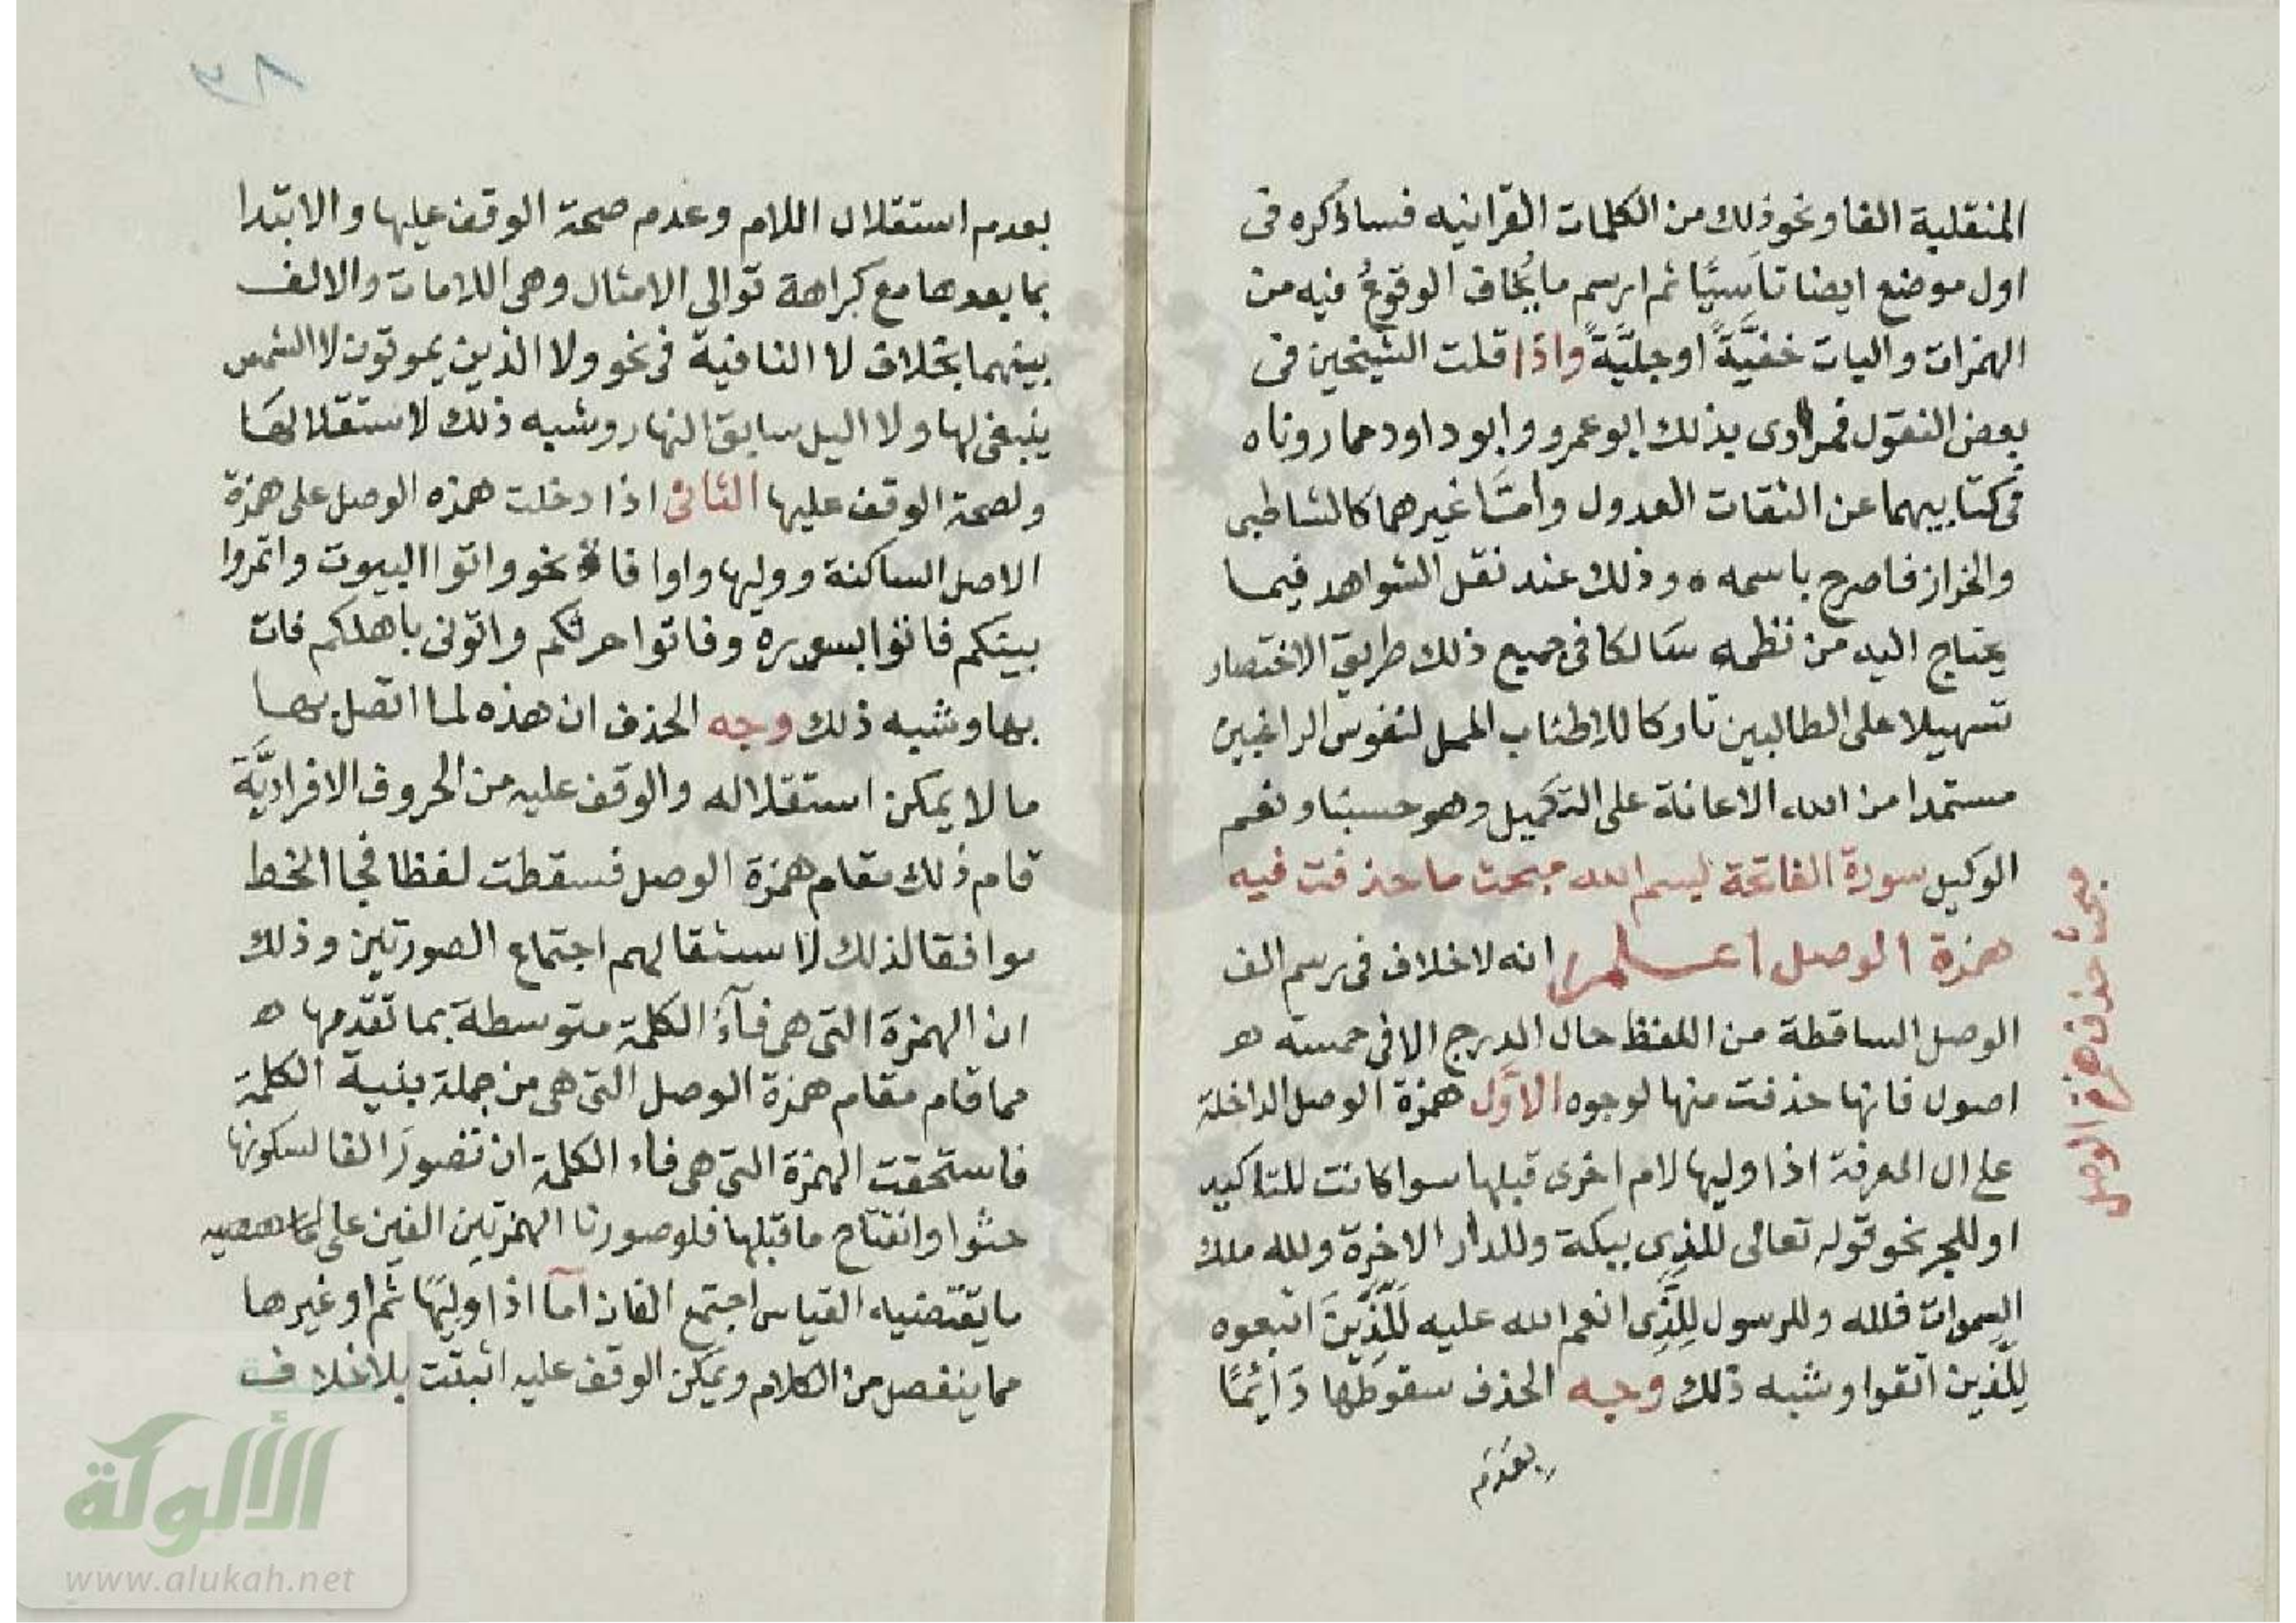 المنقلبة الفا ونحو ذلك من الكلمات القرانيه فساذكره فى
اول موضع ايضا تاسيًا ثم ارسم ما يُخاف الوقوعُ فيه من
الهمزات واليات خفيَّةً اوجليَّةً واذا قلت الشيخين فى
بعض النقول فمرادى بذلك ابو عمرو وابو داود مما روناه
فى كتابيهما عن الثقات العدول وامَّا غيرهما كالشاطبى
والخراز فاصرح باسمه ه وذلك عند نقل الشواهد فيما
يحتاج اليه من نظمه سالكا فى جميع ذلك طريق الاختصار
تسهيلا على الطالبين تاركا للاطناب الممل لنفوس الراغبين
مستمدا من الله الاعانة على التكميل وهو حسبنا ونعم
الوكيل سورة الفاتحة بسم الله مبحث ما حذفت فيه
همزة الوصل اعلم انه لا خلاف فى رسم الف
الوصل الساقطة من اللفظ حال الدرج الا فى خمسة
اصول فانها حذفت منها لوجوه الاوَّل همزة الوصل الداخلة
على ال المعرفة اذا وليها لام اخرى قبلها سوا كانت للتاكيد
او للجر نحو قوله تعالى للذى ببكة وللدار الاخرة ولله ملك
السموات فلله وللرسول لِلَّذِى انعم الله عليه لَلَّذِينَ اتبعوه
لِلَّذين اتقوا وشبه ذلك وجه الحذف سقوطها دَائِمًا
بعدم
مبحث حذف همزة الوصل
٣٨
بعدم استقلال اللام وعدم صحة الوقف عليها والابتدا
بما بعدها مع كراهة توالى الامثال وهى اللامات والالف
بينهما بخلاف لا النافية فى نحو ولا الذين يموتون لا الشمس
ينبغى لها ولا اليل سابق النهار وشبه ذلك لاستقلالها
ولصحة الوقف عليها الثانى اذا دخلت همزه الوصل على همزة
الاصل الساكنة ووليها واوا فاء نحو واتوا البيوت واتمروا
بينكم فاتوا بسوره وفاتوا حرثكم واتونى باهلكم فات
بها وشبه ذلك وجه الحذف ان هذه لما اتصل بها
ما لا يمكن استقلاله والوقف عليه من الحروف الافراديَّة
قام ذلك مقام همزة الوصل فسقطت لفظا فجا الخط
موافقا لذلك لاستثقالهم اجتماع الصورتين وذلك
ان الهمزة التى هى فآء الكلمة متوسطة بما تقدمها
مما قام مقام همزة الوصل التى هى من جملة بنية الكلمة
فاستحقت الهمزة التى هى فاء الكلمة ان تصور الفا لسكونها
حشوا وانفتاح ما قبلها فلو صورنا الهمزتين الفين على
ما يقتضيه القياس اجتمع الفان اما اذا وليها ثم او غيرها
مما ينفصل من الكلام ويمكن الوقف عليه اثبتت بلا خلاف
الألوكة
www.alukah.net